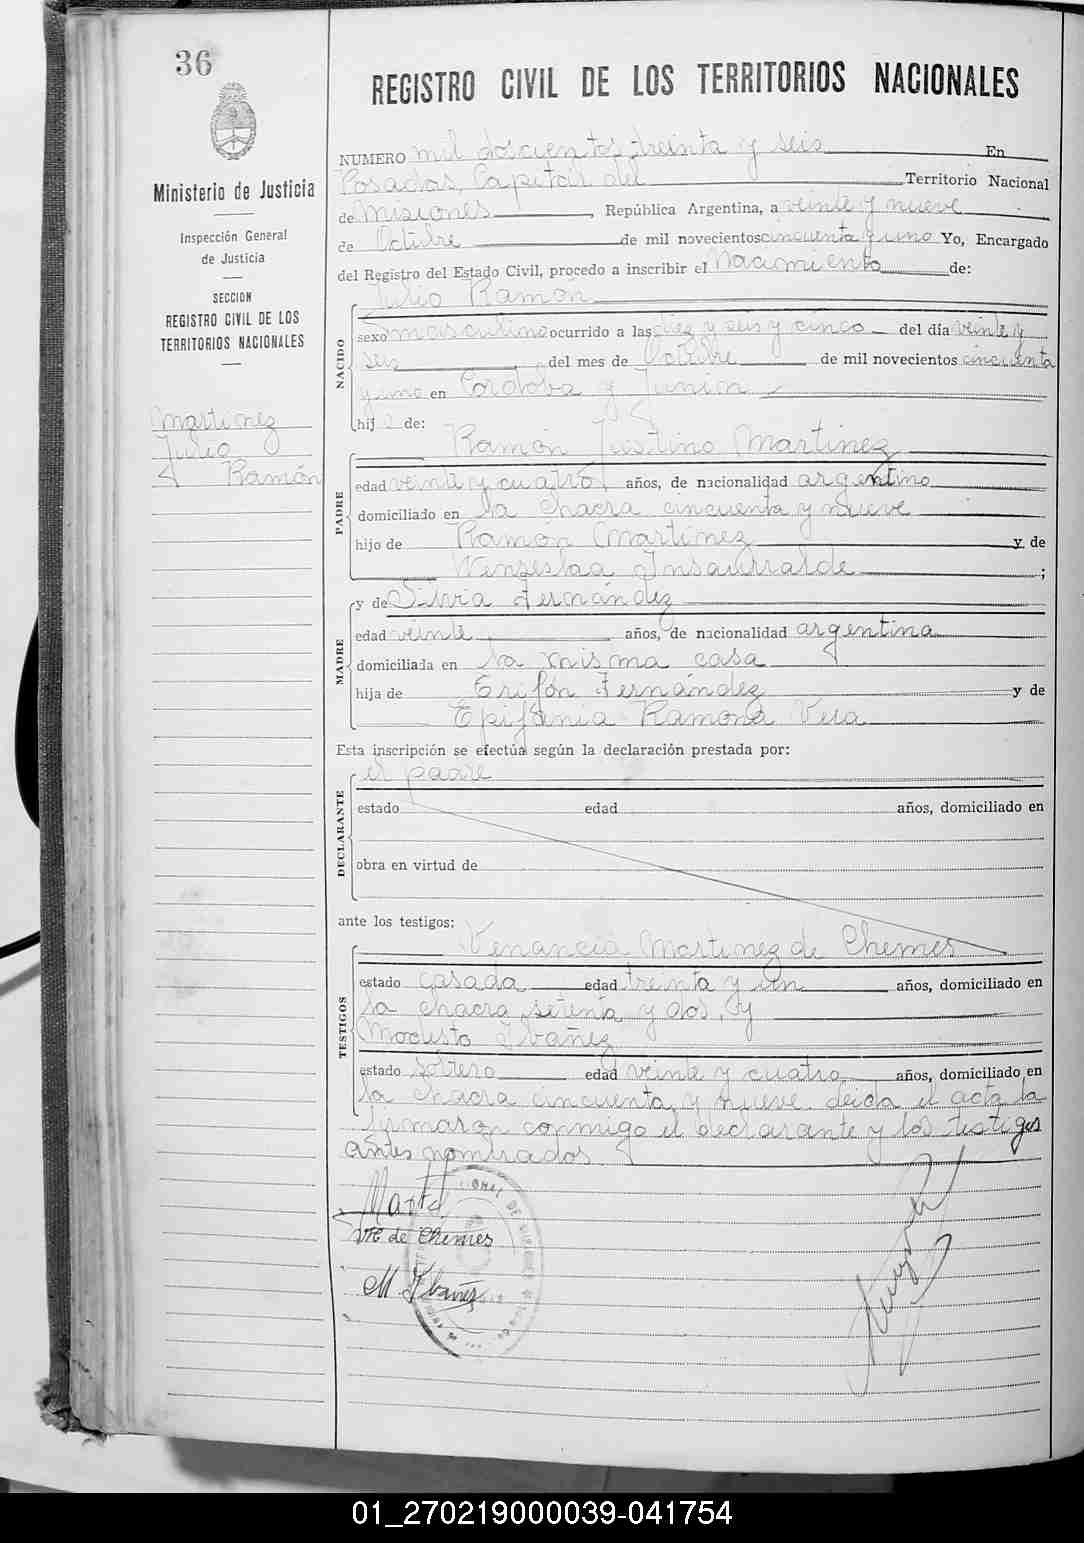 36
REGISTRO CIVIL DE LOS TERRITORIOS NACIONALES
Ministerio de Justicia
Inspección General
de Justicia
SECCION
REGISTRO CIVIL DE LOS
TERRITORIOS NACIONALES
Martinez
Julio
Ramón
NUMERO mil doscientos treinta y seis En
Posadas, Capital del Territorio Nacional
de Misiones, República Argentina, a veinte y nueve
de Octubre de mil novecientos cincuenta y uno Yo, Encargado
del Registro del Estado Civil, procedo a inscribir el Nacimiento de:
NACIDO
Julio Ramón
sexo masculino ocurrido a las diez y seis y cinco del día veinte y
seis del mes de Octubre de mil novecientos cincuenta
y uno en Córdoba y Junin
hijo de:
PADRE
Ramón Justino Martinez
edad veinte y cuatro años, de nacionalidad argentino
domiciliado en la chacra cincuenta y nueve
hijo de Ramón Martinez y de
Wenseslaa Insaurralde;
MADRE
y de Silvia Fernández
edad veinte años, de nacionalidad argentina
domiciliada en la misma casa
hija de Erifón Fernández y de
Epifania Ramona Vera
Esta inscripción se efectúa según la declaración prestada por:
DECLARANTE
el padre
estado edad años, domiciliado en
obra en virtud de
ante los testigos:
TESTIGOS
Venancia Martinez de Chemes
estado casada edad treinta y un años, domiciliado en
la chacra setenta y dos, y
Modesto Ibañez
estado soltero edad veinte y cuatro años, domiciliado en
la chacra cincuenta y nueve. Leida el acta la
firmaron conmigo el declarante y los testigos
antes nombrados
de Chemes
M Ibañez
01_270219000039-041754